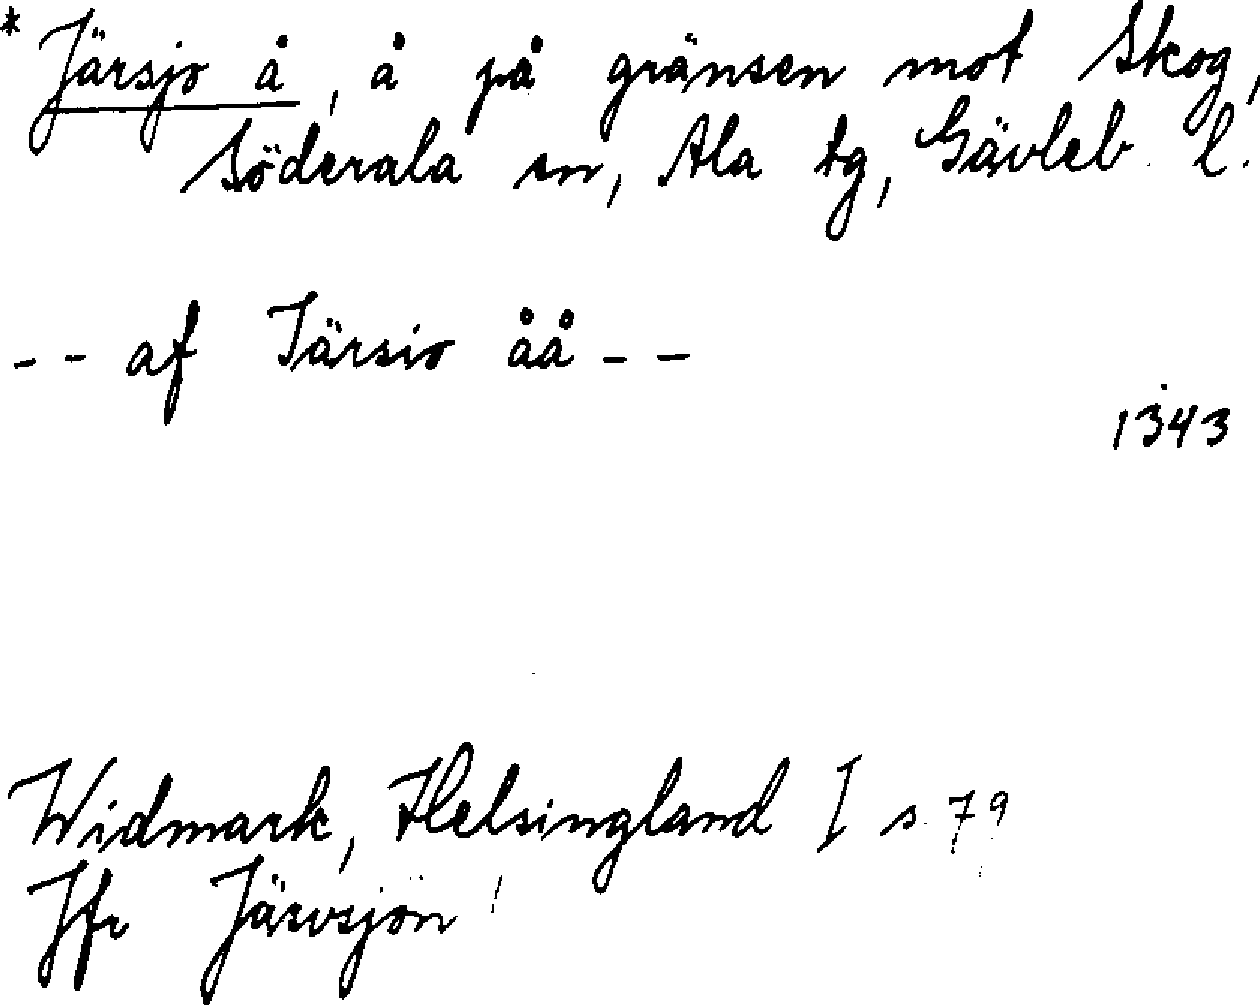 * Järsjo å, å på gränsen mot Skog,
Söderala sn, Ala tg, Gävleb. l.
-- af Järsio åå --
1343
Widmark, Helsingland I s. 79
Jfr Järvsjön